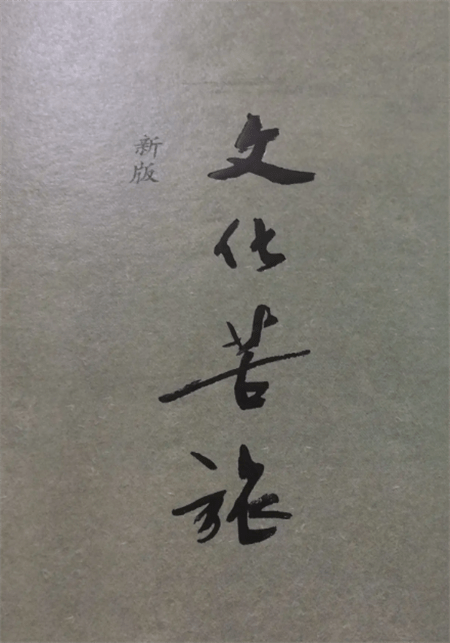 文化苦旅
新版